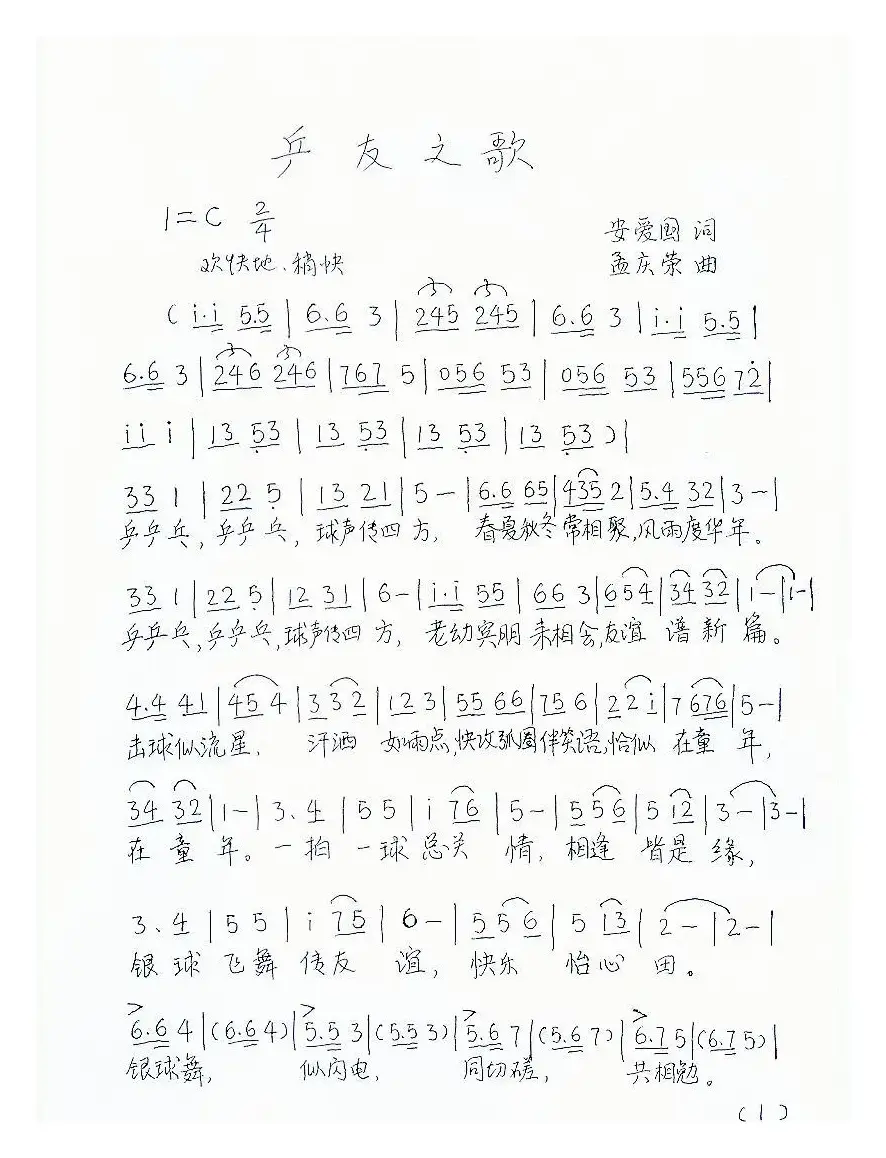 乒友之歌
1=C 2/4
安爱国 词
欢快地、稍快
孟庆荣 曲
(i·i 5.5 | 6.6 3 | 245 245 | 6.6 3 | i·i 5.5 |
6.6 3 | 246 246 | 767 5 | 056 53 | 056 53 | 556 72̇ |
i i i | 13 5̣3 | 13 5̣3 | 13 5̣3 | 13 5̣3 ) |
33 1 | 22 5̣ | 13 21 | 5 — | 6.6 65 | 435 2 | 5.4 32 | 3 — |
乒乒乓,乒乒乓,球声传四方,春夏秋冬常相聚,风雨度华年。
33 1 | 22 5̣ | 12 31 | 6 — | i·i 55 | 66 3 | 654 | 34 32 | 1 — | 1 — |
乒乒乓,乒乒乓,球声传四方,老幼宾朋来相会,友谊谱新篇。
4.4 41 | 45 4 | 3 32 | 12 3 | 55 66 | 75 6 | 22 i | 7 676 | 5 — |
击球似流星,汗洒如雨点,快攻弧圈伴笑语,恰似在童年,
34 32 | 1 — | 3. 4 | 5 5 | i 76 | 5 — | 5 56 | 5 12 | 3 — | 3 — |
在童年。一拍一球总关情,相逢皆是缘,
3. 4 | 5 5 | i 75 | 6 — | 5 56 | 5 i3 | 2 — | 2 — |
银球飞舞传友谊,快乐怡心田。
6.6 4 | (6.6 4) | 5.5 3 | (5.5 3) | 5.6 7 | (5.6 7) | 6.7 5 | (6.7 5) |
银球舞,似闪电,同切磋,共相勉。
(1)